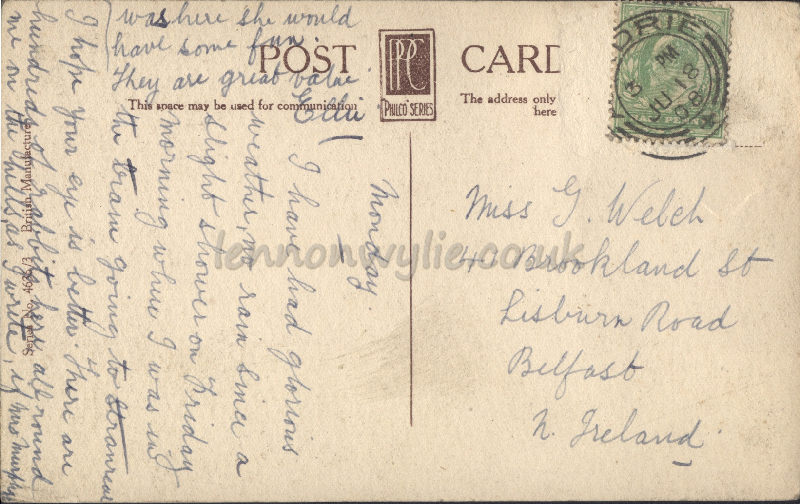 POST CARD
This space may be used for communication
The address only
here
PHILCO SERIES
Serial No. 4686/3 British Manufacture
ORIE
3 PM
JU 18
08
Monday
I have had glorious
weather, no rain since a
slight shower on Friday
morning when I was in
the tram going to Stranraer
I hope your eye is better. There are
hundreds of rabbits here all round
me on the hills as I write, if Mrs Murphy
was here she would
have some fun.
They are great value.
Ellie
Miss G. Welch
41 Brookland St
Lisburn Road
Belfast
N. Ireland
lennonwylie.co.uk